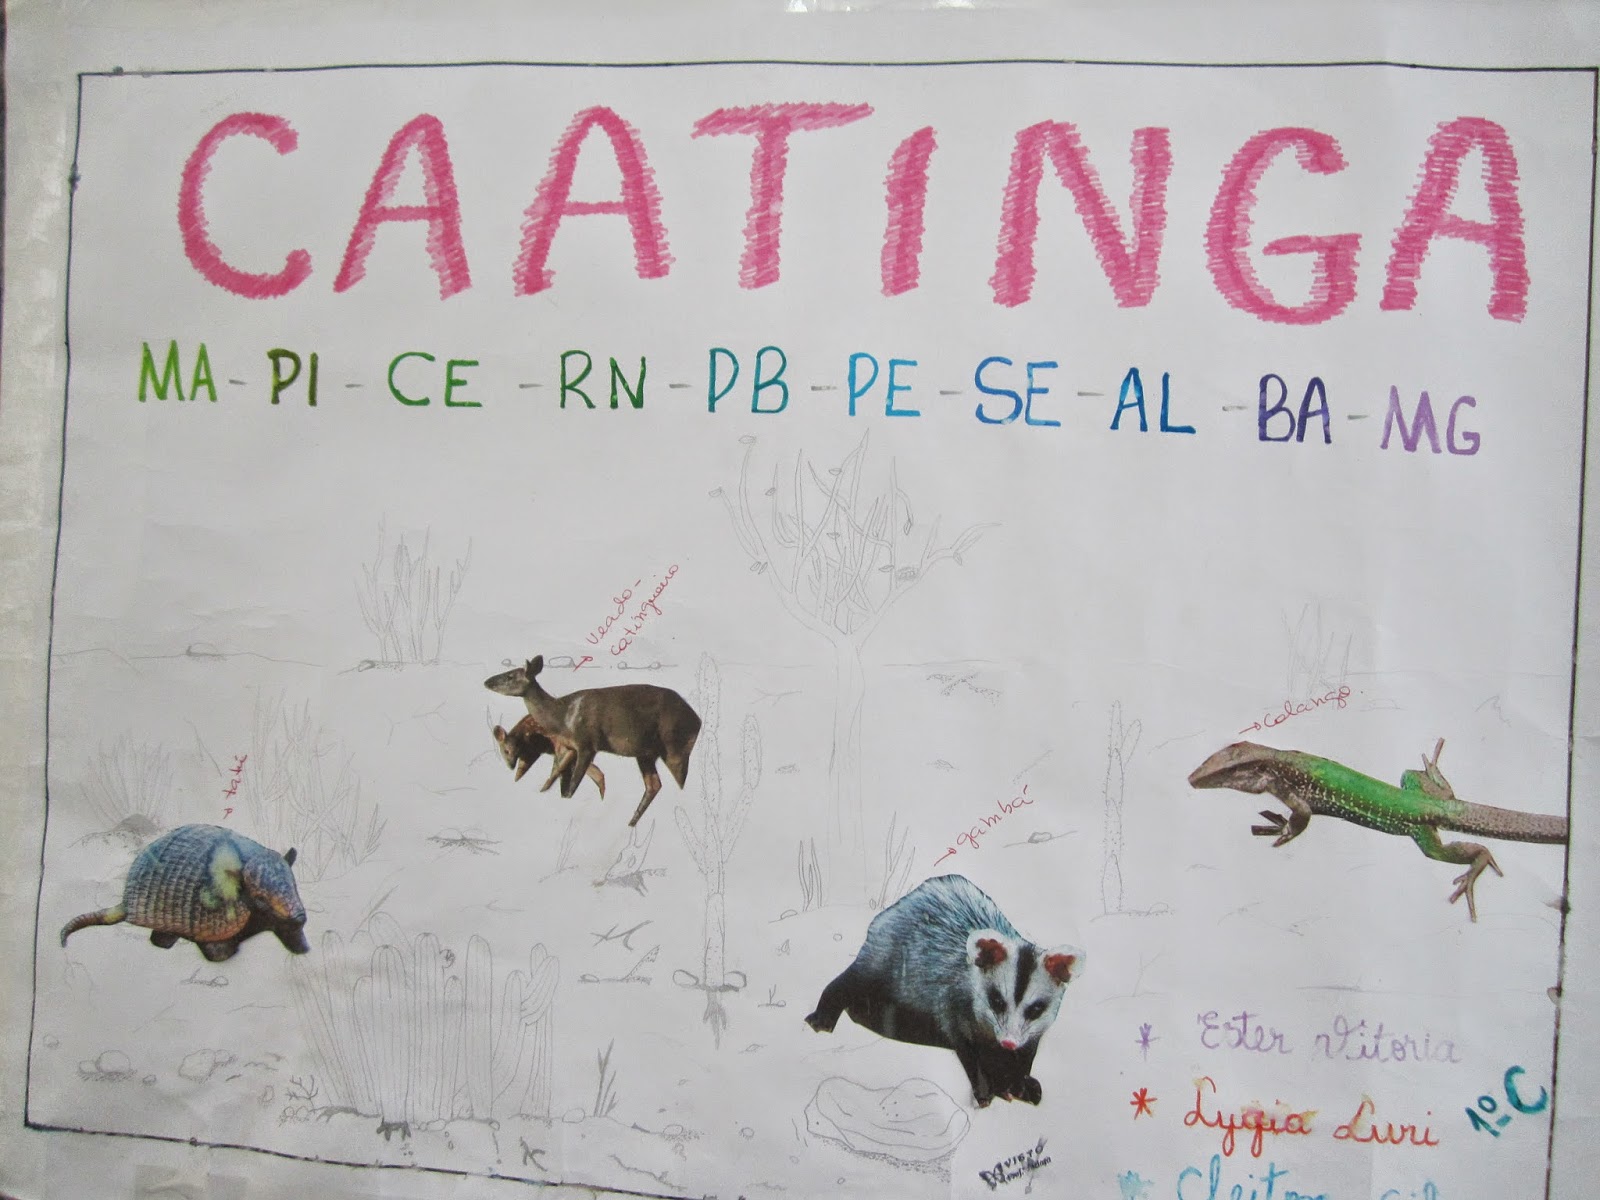 CAATINGA
MA - PI - CE - RN - PB - PE - SE - AL - BA - MG
veado-
catingueiro
calango
tatú
gambá
* Ester Vitoria
* Lygia Luri 1º C
VISTO